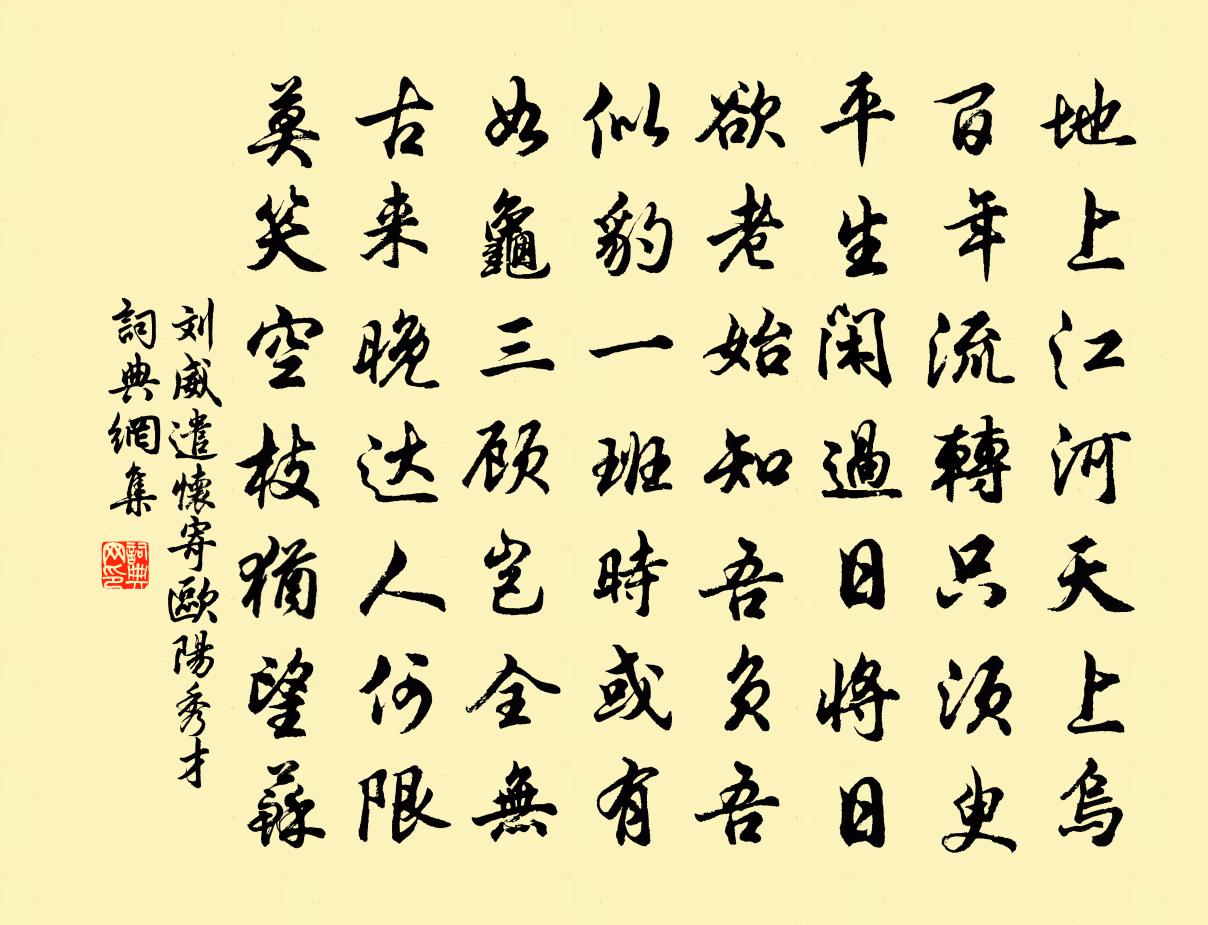 地上江河天上烏
百年流轉只須臾
平生閑過日將日
欲老始知吾负吾
似豹一班時或有
如龜三顾豈全無
古来晚达人何限
莫笑空枝猶望蘇
刘威遣懷寄歐陽秀才
詞典網集
詞典网印